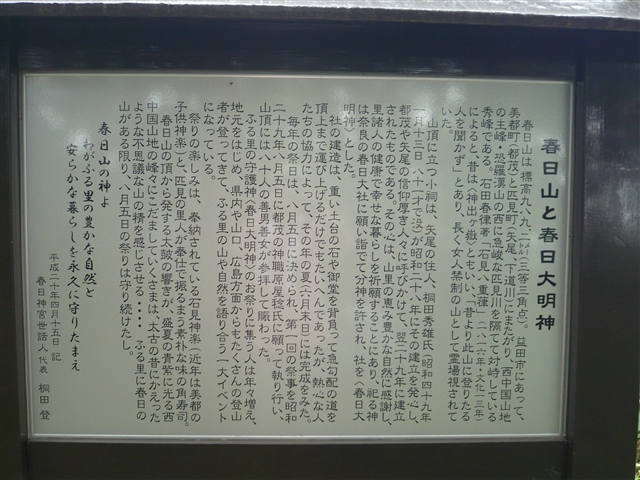 春日山と春日大明神
春日山は標高九八九・二㍍(三等三角点)。益田市にあって、
美都町(都茂)と匹見町(矢尾、下道川)にまたがり、西中国山地
の主峰・恐羅漢山の西に急峻な匹見川を隔てて対峙している
秀峰である。石田春律著「石見八重葎」(一八一六年・文化一三年)
によると、昔は〈神出ヶ嶽〉ともいい、「昔より此山に登りたる
人を聞かず」とあり、長く女人禁制の山として霊場視されて
いた。
山頂に立つ小祠は、矢尾の住人、桐田秀雄氏(昭和四十九年
一月十三日 八十一才で没)が昭和二十八年にその建立を発心し、
都茂や矢尾の信仰厚き人々に呼びかけて、翌二十九年に建立
されたものである。その心は、山里の恵み豊かな自然に感謝し、
里諸人の健康で幸せな暮らしを祈願することにあり、祀る神
は奈良の春日大社に願い詣でて分神を許され、社を〈春日大
明神〉とした。
社の建造は、重い土台の石や御堂を背負って急勾配の道を
頂上まで運び上げるだけでもたいへんであったが、熱心な人
たちの協力によって、その年の夏(七月末日)には完成をみた。
毎年の祭日は、八月五日に決められ、第一回の祭事を昭和
二十九年八月五日に都茂の神職原屋捻氏に願って執り行い、
山頂には八十人の善男善女が参拝して賑わった。
ふる里の守護神〈春日大明神〉のお祭りに集う人は年々増え、
地元をはじめ、県内や山口、広島方面からもたくさんの登山
者が登ってきて、ふる里の山や自然を語り合う一大イベント
になっている。
祭りの楽しみは、奉納されている石見神楽(近年は美都の
子供神楽)と、匹見の里人が奉仕で振るまう素朴な味の角寿司。
春日山の頂から発する太鼓の響きが、盛夏の青紫に光る西
中国山地の峰々にこだましていくさまは、太古の昔にかえった
ような不思議な山の精を感じさせる・・・。ふる里に春日の
山がある限り、八月五日の祭りは守り続けたし。
春日山の神よ
わがふる里の豊かな自然と
安らかな暮らしを永久に守りたまえ
平成二十年四月十五日 記
春日神宮世話人代表 桐田 登